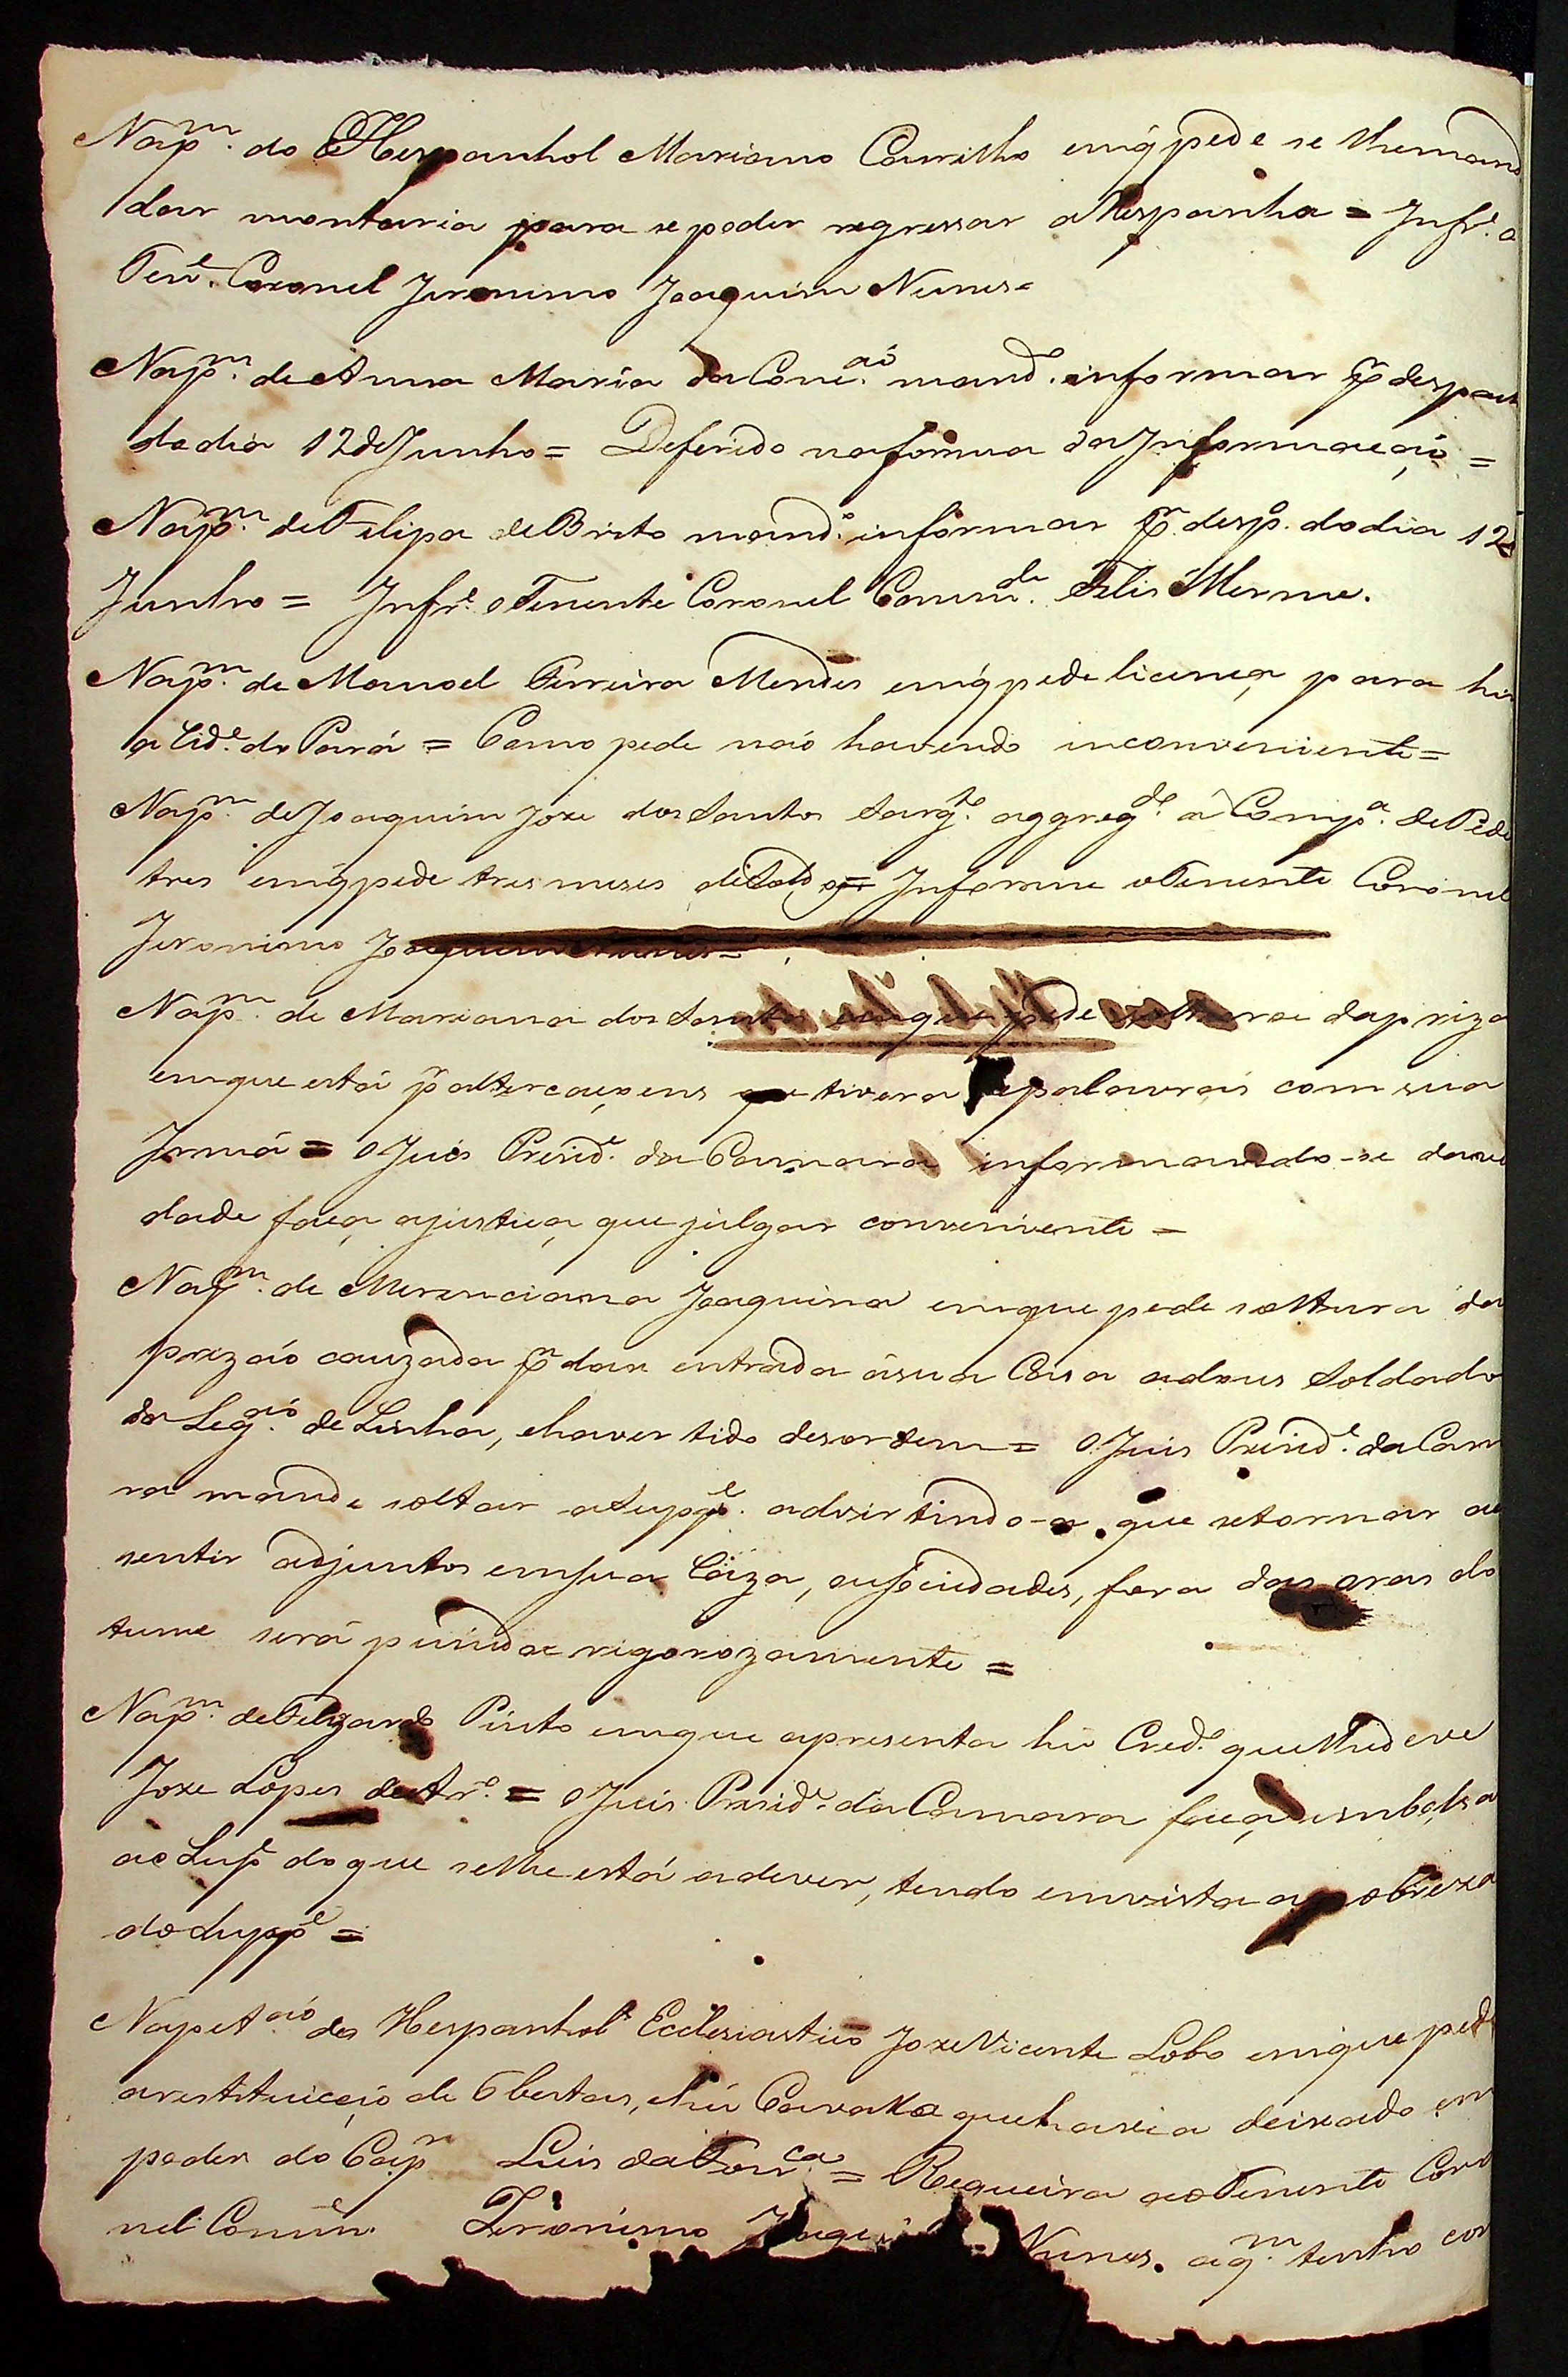 Nap.m do Hespanhol Mariano Carrilho emq̃ pede se lhemand
dar montaria para se poder regressar a Hespanha = Infr.e o
Ten.e Coronel Jeronimo Joaquim Nunes=
Nap.m de Anna Maria da Conc.aó mand.o informar p.r despach
do dia 12 de Junho = Deferido naforma da Informacçaó =
Nap.m de Felipa de Brito mand.o informar p.r desp.o do dia 12 d
Junho = Infr.e o Tenente Coronel Comm.de Felis Merme.
Nap.m de Manoel Ferreira Mendes emq̃ pede licença para hir
a Cid.e do Pará = Como pede naó havendo inconveniente=
Nap.m de Joaquim Joze dos Santos Sarg.to aggreg.do á Comp.a de Pede
tres emq̃ pede tres meses de Soldo = Informe o Tenente Coronel
Jeronimo Joaquim Nunes=
Nap.m de Mariana dos Santos emque pede soltarse da prizaó
emque está p.r altercaçoens que tivera de palavras com sua
Irmá = O Juis Presid.e da Camara informando-se daver
dade faça ajustiça que julgar conveniente =
Nap.m de Merenciana Joaquina emque pede soltura da
prizaó cauzada p.r dar entrada ásua Casa adous Soldados
da Leg.aó de Linha, ehaver tido desordem = O Juis Presid.e da Cama
ra mande soltar aSupp.e advirtindo-a que setornar a con
sentir adjuntos emsua Caza, ou suciudades, fora das oras do
tume será punida rigorozamente =
Nap.m de Felizardo Pinto emque apresenta hú Cred.o quelhedeve
Joze Lopes de Ar.o = O Juis Presid.e da Camara faça embolsa
ao Sup.e do que selhe está adever, tendo emvista a pobreza
do Supp.e =
Napet.aó do Hespanhol Ecclesiastico Joze Vicente Lobo emque pede
arestituicçaó de 6 bestas, ehú Cavallo que havia deixado em
poder do Cap.m Luis da Fon.ca = Requeira ao Tenente Coro
nel Comm.e Jeronimo Joaquim Nunes. aq.m tenho con